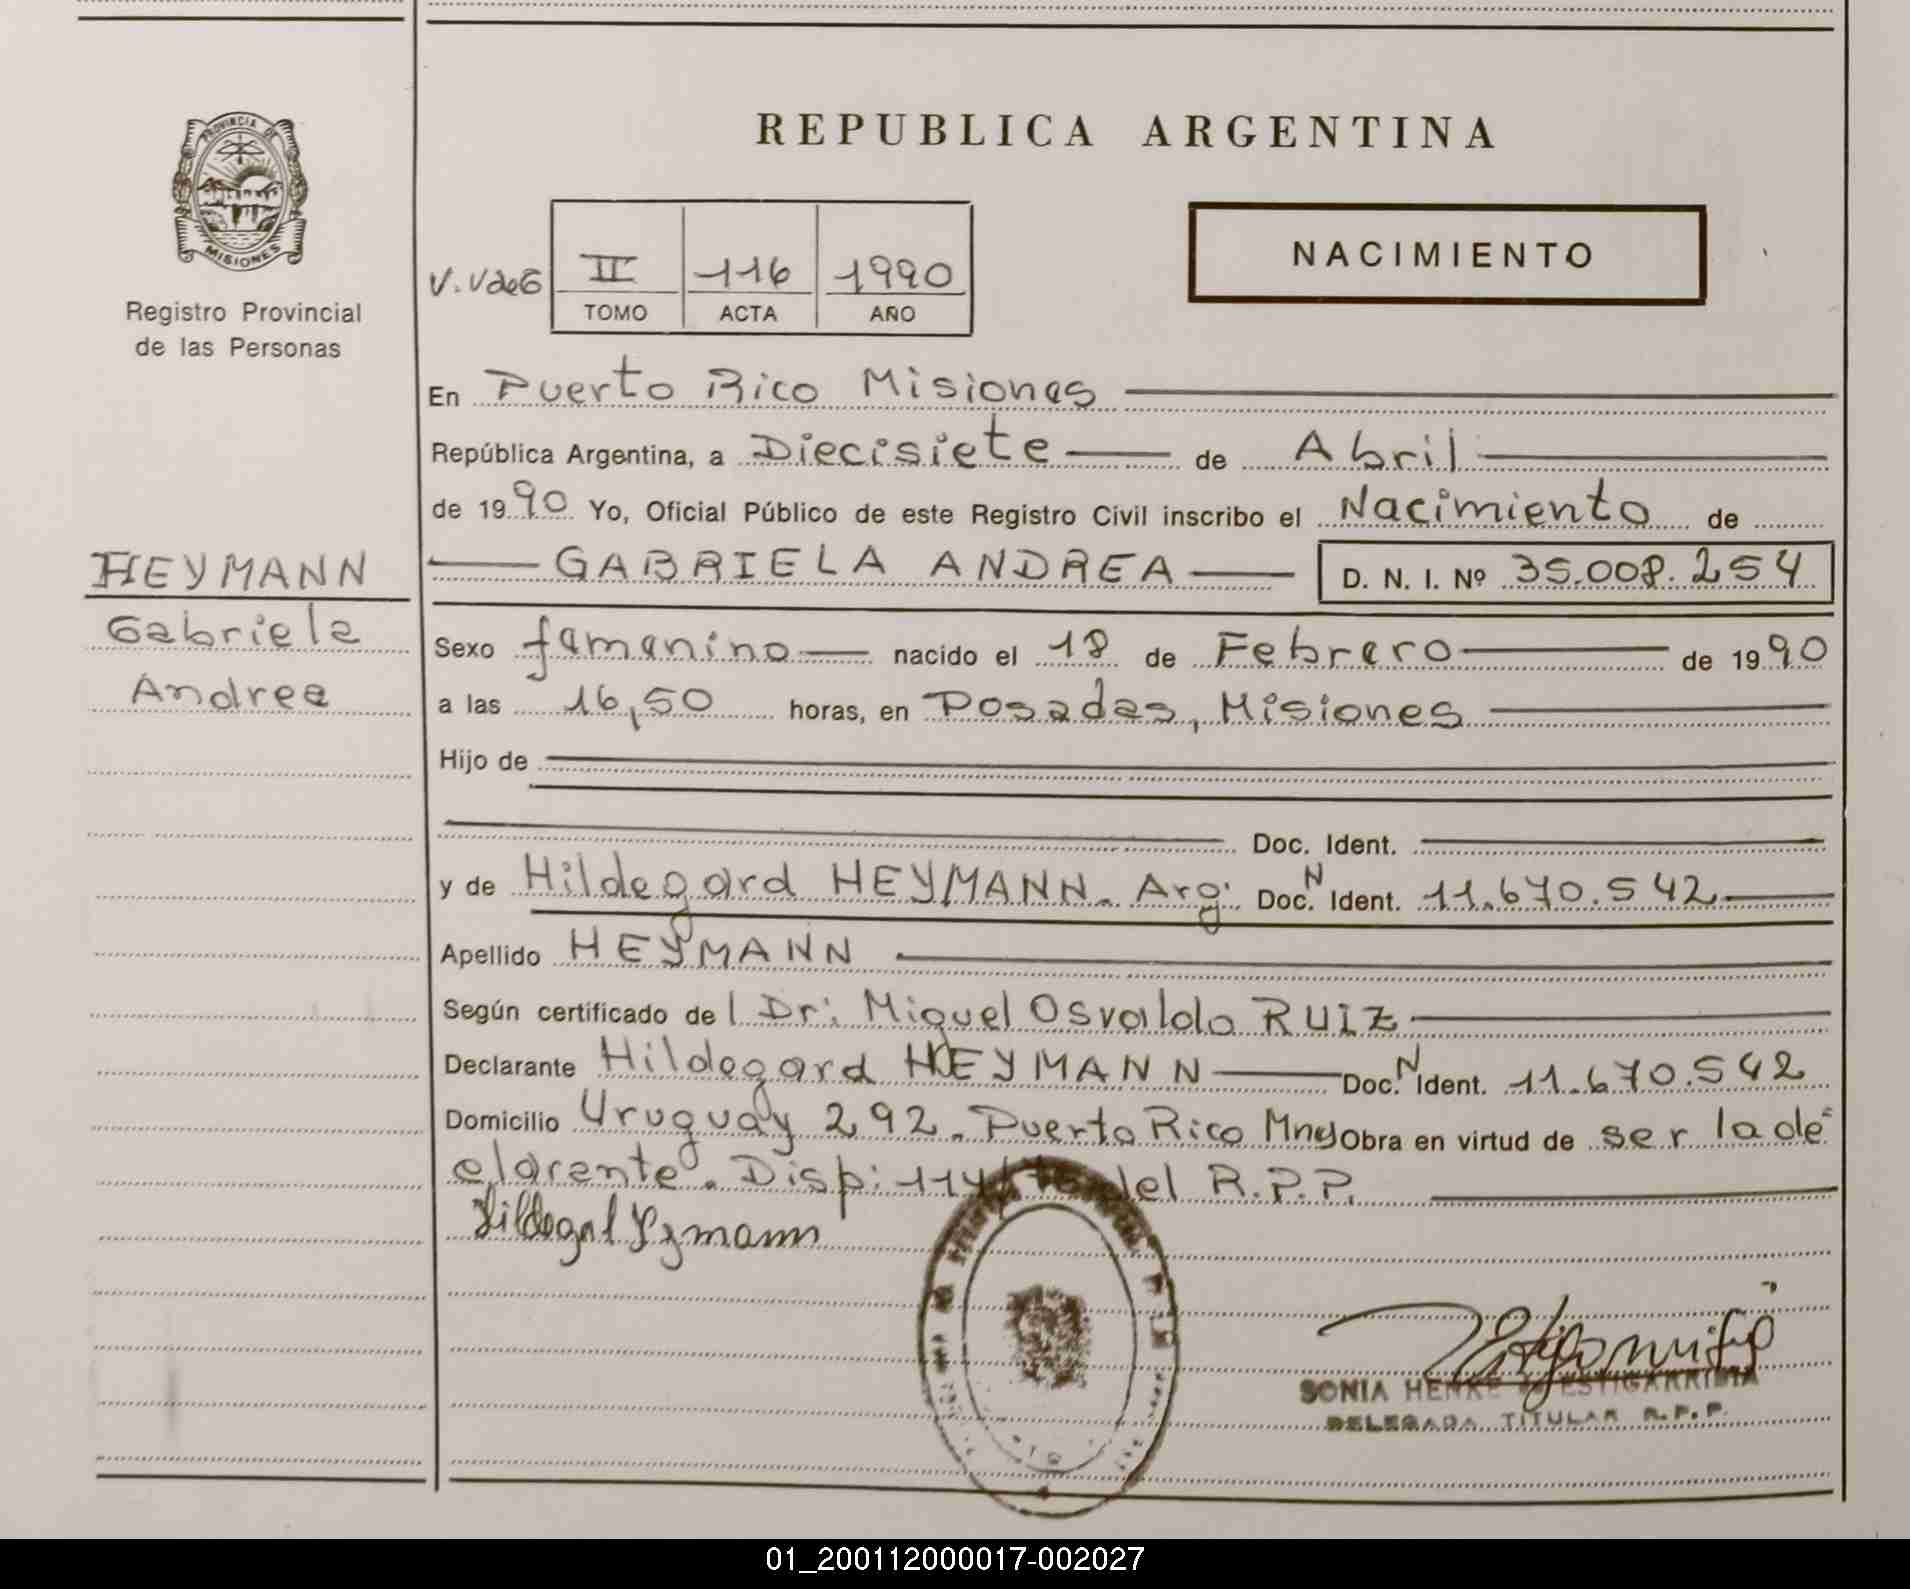 REPUBLICA ARGENTINA
PROVINCIA DE
MISIONES
Registro Provincial
de las Personas
NACIMIENTO
V.VdeG II 116 1990
TOMO ACTA AÑO
En Puerto Rico Misiones
República Argentina, a Diecisiete de Abril
de 1990 Yo, Oficial Público de este Registro Civil inscribo el Nacimiento de
HEYMANN
Gabriela
Andrea
GABRIELA ANDREA D. N. I. Nº 35.008.254
Sexo femenino nacido el 18 de Febrero de 1990
a las 16,50 horas, en Posadas, Misiones
Hijo de
Doc. Ident.
y de Hildegard HEYMANN. Arg. Doc. N Ident. 11.670.542
Apellido HEYMANN
Según certificado del Dr: Miguel Osvaldo RUIZ
Declarante Hildegard HEYMANN Doc. N Ident. 11.670.542
Domicilio Uruguay 292. Puerto Rico Mnes Obra en virtud de ser la de
clarante. Disp: 114/76 del R.P.P.
Hildegard Heymann
SONIA HENKE ESTIGARRIBIA
DELEGADA TITULAR R.P.P.
01_200112000017-002027